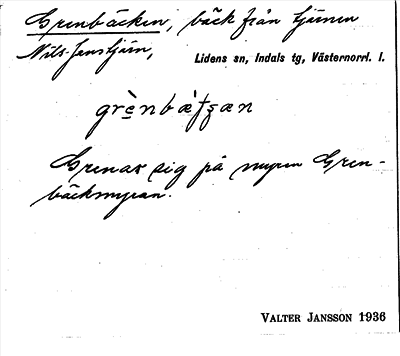 Grenbäcken, bäck från tjärnen
Nils-Jenstjärn,
Lidens sn, Indals tg, Västernorrl. l.
Grenar sig på myren Gren-
bäckmyran.
VALTER JANSSON 1936